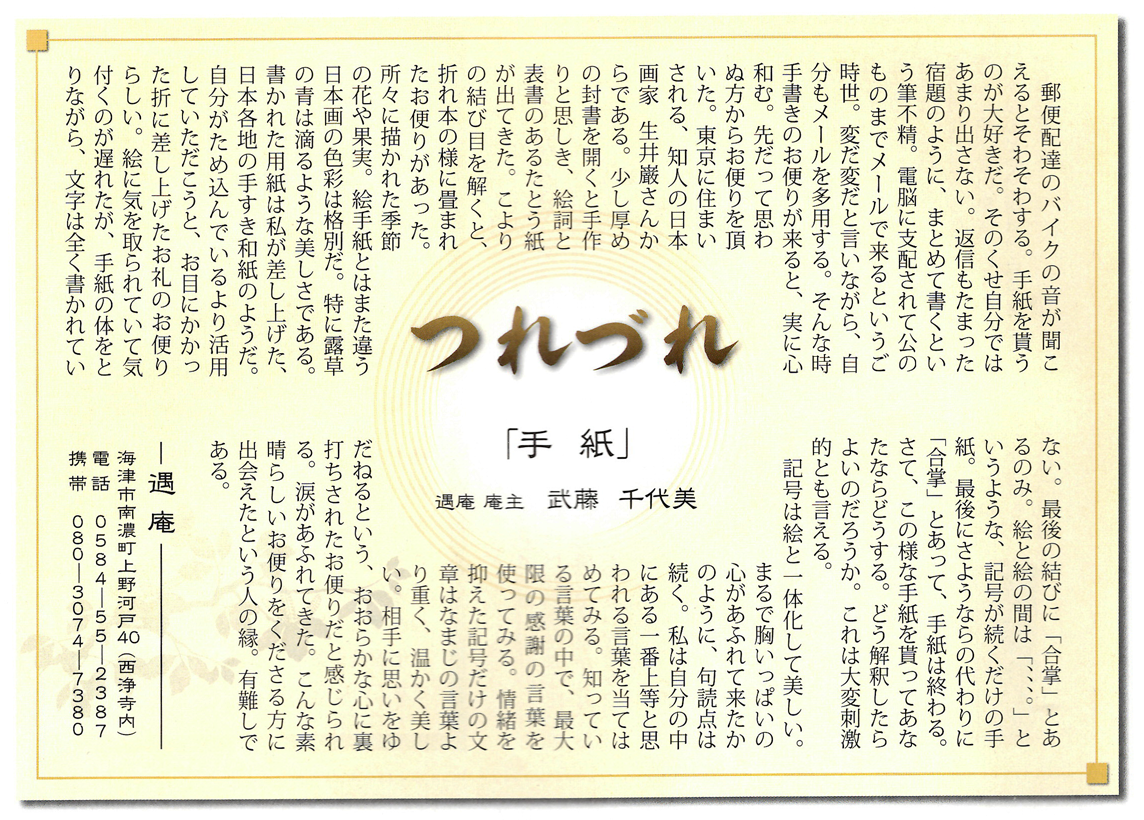 つれづれ
「手紙」
遇庵 庵主 武藤 千代美
郵便配達のバイクの音が聞こ
えるとそわそわする。手紙を貰う
のが大好きだ。そのくせ自分では
あまり出さない。返信もたまった
宿題のように、まとめて書くとい
う筆不精。電脳に支配されて公の
ものまでメールで来るというご
時世。変だ変だと言いながら、自
分もメールを多用する。そんな時
手書きのお便りが来ると、実に心
和む。先だって思わ
ぬ方からお便りを頂
いた。東京に住まい
される、知人の日本
画家 生井巌さんか
らである。少し厚め
の封書を開くと手作
りと思しき、絵詞と
表書のあるたとう紙
が出てきた。こより
の結び目を解くと、
折れ本の様に畳まれ
たお便りがあった。
所々に描かれた季節
の花や果実。絵手紙とはまた違う
日本画の色彩は格別だ。特に露草
の青は滴るような美しさである。
書かれた用紙は私が差し上げた、
日本各地の手すき和紙のようだ。
自分がため込んでいるより活用
していただこうと、お目にかかっ
た折に差し上げたお礼のお便り
らしい。絵に気を取られていて気
付くのが遅れたが、手紙の体をと
りながら、文字は全く書かれてい
ない。最後の結びに「合掌」とあ
るのみ。絵と絵の間は「、、、、。」と
いうような、記号が続くだけの手
紙。最後にさようならの代わりに
「合掌」とあって、手紙は終わる。
さて、この様な手紙を貰ってあな
たならどうする。どう解釈したら
よいのだろうか。これは大変刺激
的とも言える。
記号は絵と一体化して美しい。
まるで胸いっぱいの
心があふれて来たか
のように、句読点は
続く。私は自分の中
にある一番上等と思
われる言葉を当ては
めてみる。知ってい
る言葉の中で、最大
限の感謝の言葉を
使ってみる。情緒を
抑えた記号だけの文
章はなまじの言葉よ
り重く、温かく美し
い。相手に思いをゆ
だねるという、おおらかな心に裏
打ちされたお便りだと感じられ
る。涙があふれてきた。こんな素
晴らしいお便りをくださる方に
出会えたという人の縁。有難しで
ある。
遇庵
海津市南濃町上野河戸40(西浄寺内)
電話 0584―55―2387
携帯 080―3074―7380